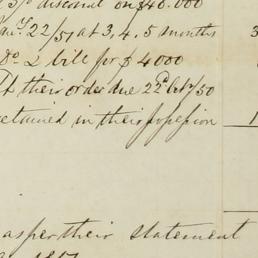 discount on $40.000
22/51 at 3, 4, 5 months
Do 2 bill for $4000
their order due 22d Oct/50
retained in their possession
as per their statement